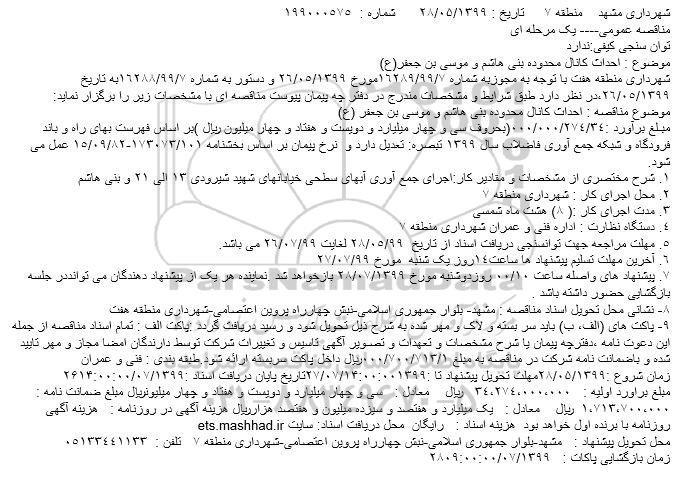 شهرداری مشهد    منطقه ۷    تاریخ : ۲۸/۰۵/۱۳۹۹    شماره : ۱۹۹۰۰۰۵۷۵
مناقصه عمومی---- یک مرحله ای
توان سنجی کیفی:ندارد
موضوع : احداث کانال محدوده بنی هاشم و موسی بن جعفر(ع)
شهرداری منطقه هفت با توجه به مجوزیه شماره ۱۶۲۸۹/۹۹/۷مورخ ۲۶/۰۵/۱۳۹۹ و دستور به شماره ۱۶۲۸۸/۹۹/۷به تاریخ
۲۶/۰۵/۱۳۹۹،در نظر دارد طبق شرایط و مشخصات مندرج در دفتر چه پیمان پیوست مناقصه ای با مشخصات زیر را برگزار نماید:
موضوع مناقصه : احداث کانال محدوده بنی هاشم و موسی بن جعفر (ع)
مبلغ برآورد :۰۰۰/۰۰۰/۲۷۴/۳۴(بحروف سی و چهار میلیارد و دویست و هفتاد و چهار میلیون ریال )بر اساس فهرست بهای راه و باند
فرودگاه و شبکه جمع آوری فاضلاب سال ۱۳۹۹ تبصره: تعدیل دارد و  نرخ پیمان بر اساس بخشنامه ۱۷۳۰۷۳/۱۰۱-۱۵/۰۹/۸۲ عمل می
شود.
۱. شرح مختصری از مشخصات و مقادیر کار:اجرای جمع آوری آبهای سطحی خیابانهای شهید شیرودی ۱۳ الی ۲۱ و بنی هاشم
۲. محل اجرای کار : شهرداری منطقه ۷
۳. مدت اجرای کار :( ۸) هشت ماه شمسی
۴. دستگاه نظارت : اداره فنی و عمران شهرداری منطقه ۷
۵. مهلت مراجعه جهت توانسنجی دریافت اسناد از تاریخ  ۲۸/۰۵/۹۹ لغایت ۲۶/۰۷/۹۹ می باشد.
۶. آخرین مهلت تسلیم پیشنهاد ها ساعت۱۴روز یک شنبه  مورخ ۲۷/۰۷/۹۹
۷. پیشنهاد های واصله ساعت ۰۰/۱۰ روزدوشنبه مورخ ۲۸/۰۷/۱۳۹۹ بازخواهد شد .نماینده هر یک از پیشنهاد دهندگان می توانددر جلسه
بازگشایی حضور داشته باشد .
۸- نشانی محل تحویل اسناد مناقصه : مشهد- بلوار جمهوری اسلامی-نبش چهارراه پروین اعتصامی-شهرداری منطقه هفت
۹- پاکت های (الف، ب) باید سر بسته و لاک و مهر شده به شرح ذیل تحویل شود و رسید دریافت گردد .پاکت الف : تمام اسناد مناقصه از جمله
این دعوت نامه ،دفترچه پیمان یا شرح مشخصات و تعهدات و تصویر آگهی تاسیس و تغییرات شرکت توسط دارندگان امضا مجاز و مهر تایید
شده و باضمانت نامه شرکت در مناقصه به مبلغ ۰۰۰/۷۰۰/۷۱۳/۱ریال داخل پاکت سربسته ارائه شود.طبقه بندی : فنی و عمران
زمان شروع :۲۸/۰۵/۱۳۹۹مهلت تحویل پیشنهاد تا :۲۷/۰۷/۱۴:۰۰:۰۰۱۳۹۹تاریخ پایان دریافت اسناد :۲۶۱۴:۰۰:۰۰/۰۷/۱۳۹۹
مبلغ براورد اولیه :   ۳۴،۲۷۴،۰۰۰،۰۰۰   ریال    معادل :   سی و چهار میلیارد و دویست و هفتاد و چهار میلیونریال مبلغ ضمانت نامه :
۱،۷۱۳،۷۰۰،۰۰۰  ریال   معادل :   یک میلیارد و هفتصد و سیزده میلیون و هفتصد هزارریال هزینه آگهی در روزنامه :   هزینه آگهی
روزنامه با برنده اول خواهد بود  هزینه اسناد :   رایگان  محل دریافت اسناد: سایت ets.mashhad.ir
محل تحویل پیشنهاد :   مشهد-بلوار جمهوری اسلامی-نبش چهارراه پروین اعتصامی-شهرداری منطقه ۷   تلفن : ۰۵۱۳۳۴۴۱۱۳۳
زمان بازگشایی پاکات :   ۲۸۰۹:۰۰:۰۰/۰۷/۱۳۹۹